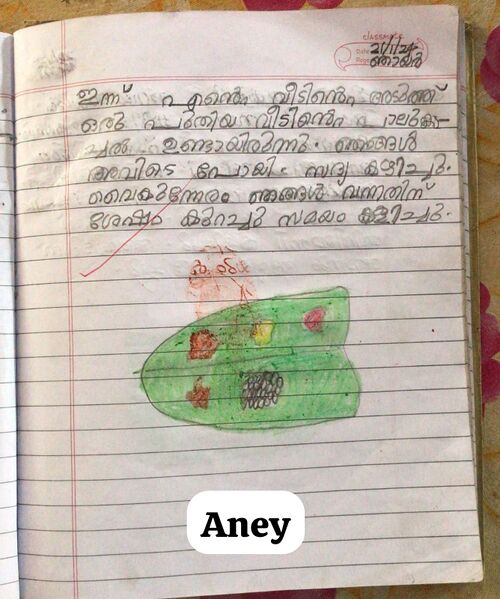 classmate
Date 21/1/24
Page ഞായർ
ഇന്ന് എന്റെ വീടിന്റെ അടുത്ത്
ഒരു പുതിയ വീടിന്റെ പാലുകാ-
ച്ചൽ ഉണ്ടായിരുന്നു. ഞങ്ങൾ
അവിടെ പോയി. സദ്യ കഴിച്ചു.
വൈകുന്നേരം ഞങ്ങൾ വന്നതിന്
ശേഷം കുറച്ചു സമയം കളിച്ചു.
Aney